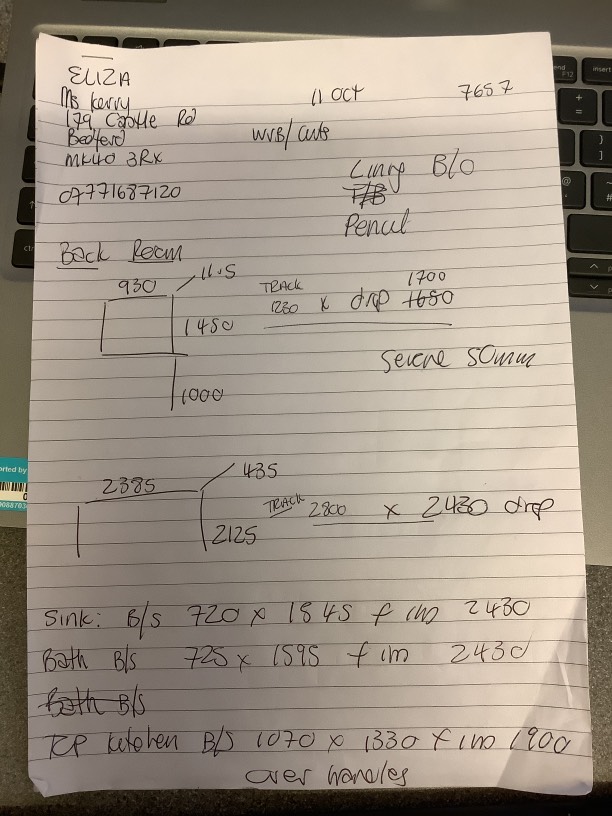 ELIZA
Ms Kerry
11 OCT
7657
179 Castle Rd
Bedford
WVB/Cuts
MK40 3RX
Lining B/O
07771687120
F/B
Pencil
Back Room
930
11.5
TRACK
1700
1230 x drop 1680
1450
Severe 50mm
1000
2385
435
TRACK 2800 x 2430 drop
2125
Sink: B/S 720 x 1845 f im 2430
Bath B/S 725 x 1595 f im 2430
Bath B/S
Kitchen B/S 1070 x 1330 f im 1900
over handles
end
F12
insert